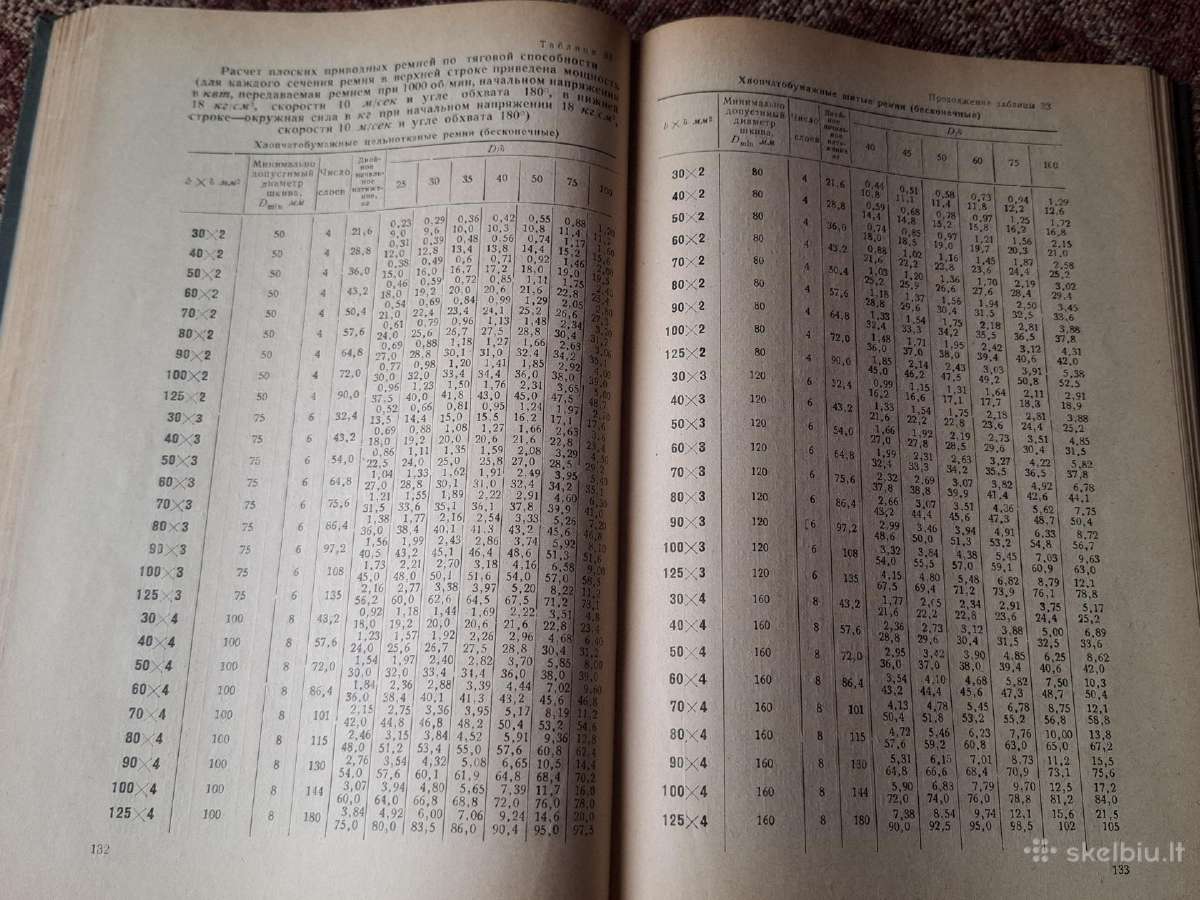 Таблица
Расчет плоских приводных ремней по тяговой способности
(для каждого сечения ремня в верхней строке приведена мощность
в квт, передаваемая ремнем при 1000 об/мин, начальном напряжении
18 кг/см², скорости 10 м/сек и угле обхвата 180°, в нижней
строке—окружная сила в кг при начальном напряжении 18 кг/см²,
скорости 10 м/сек и угле обхвата 180°)
Хлопчатобумажные цельнотканые ремни (бесконечные)
b × δ мм² Минимально допустимый диаметр шкива, Dmin мм Число слоев Двойное начальное натяжение, кг D/δ
25 30 35 40 50 75 100
30×2 50 4 21,6 0,23 0,29 0,36 0,42 0,55 0,88 1,20
9,0 9,6 10,0 10,3 10,8 11,4
40×2 50 4 28,8 0,31 0,39 0,48 0,56 0,74 1,17
12,0 12,8 13,4 13,8 14,4 15,2
50×2 50 4 36,0 0,38 0,49 0,6 0,71 0,92 1,46
15,0 16,0 16,7 17,2 18,0 19,0
60×2 50 4 43,2 0,46 0,59 0,72 0,85 1,11 1,75
18,0 19,2 20,0 20,6 21,6 22,8
70×2 50 4 50,4 0,54 0,69 0,84 0,99 1,29 2,05
21,0 22,4 23,4 24,1 25,2 26,6
80×2 50 4 57,6 0,61 0,79 0,96 1,13 1,48 2,34
24,0 25,6 26,7 27,5 28,8 30,4
90×2 50 4 64,8 0,69 0,88 1,18 1,27 1,66 2,63
27,0 28,8 30,1 31,0 32,4 34,2
100×2 50 4 72,0 0,77 0,98 1,20 1,41 1,85 2,92
30,0 32,0 33,4 34,4 36,0 38,0
125×2 50 4 90,0 0,96 1,23 1,50 1,76 2,31 3,65
37,5 40,0 41,8 43,0 45,0 47,5
30×3 75 6 32,4 0,52 0,66 0,81 0,95 1,24 1,97
13,5 14,4 15,0 15,5 16,2 17,1
40×3 75 6 43,2 0,69 0,88 1,08 1,27 1,66 2,63
18,0 19,2 20,0 20,6 21,6 22,8
50×3 75 6 54,0 0,86 1,11 1,35 1,59 2,08 3,29
22,5 24,0 25,0 25,8 27,0 28,5
60×3 75 6 64,8 1,04 1,33 1,62 1,91 2,49 3,95
27,0 28,8 30,1 31,0 32,4 34,2
70×3 75 6 75,6 1,21 1,55 1,89 2,22 2,91 4,60
31,5 33,6 35,1 36,1 37,8 39,9
80×3 75 6 86,4 1,38 1,77 2,16 2,54 3,33 5,26 7,20
36,0 38,4 40,1 41,3 43,2 45,6 46,8
90×3 75 6 97,2 1,56 1,99 2,43 2,86 3,74 5,92 8,10
40,5 43,2 45,1 46,4 48,6 51,3 51,6
100×3 75 6 108 1,73 2,21 2,70 3,18 4,16 6,58 9,00
45,0 48,0 50,1 51,6 54,0 57,0 58,5
125×3 75 6 135 2,16 2,77 3,38 3,97 5,20 8,22 11,2
56,2 60,0 62,6 64,5 67,5 71,2 73,1
30×4 100 8 43,2 0,92 1,18 1,44 1,69 2,22 3,51 4,8
18,0 19,2 20,0 20,6 21,6 22,8 23,4
40×4 100 8 57,6 1,23 1,57 1,92 2,26 2,96 4,68 6,40
24,0 25,6 26,7 27,5 28,8 30,4 31,2
50×4 100 8 72,0 1,54 1,97 2,40 2,82 3,70 5,85 8,00
30,0 32,0 33,4 34,4 36,0 38,0 39,0
60×4 100 8 86,4 1,84 2,36 2,88 3,39 4,44 7,02 9,60
36,0 38,4 40,1 41,3 43,2 45,6 46,8
70×4 100 8 101 2,15 2,75 3,36 3,95 5,17 8,19 11,2
42,0 44,8 46,8 48,2 50,4 53,2 54,6
80×4 100 8 115 2,46 3,15 3,84 4,52 5,91 9,36 12,8
48,0 51,2 53,4 55,0 57,6 60,8 62,4
90×4 100 8 130 2,76 3,54 4,32 5,08 6,65 10,5 14,4
54,0 57,6 60,1 61,9 64,8 68,4 70,2
100×4 100 8 144 3,07 3,94 4,80 5,65 7,39 11,7 16,0
60,0 64,0 66,8 68,8 72,0 76,0 78,0
125×4 100 8 180 3,84 4,92 6,00 7,06 9,24 14,6 20,0
75,0 80,0 83,5 86,0 90,4 95,0 97,5
132
Продолжение таблицы 33
Хлопчатобумажные шитые ремни (бесконечные)
b × δ мм² Минимально допустимый диаметр шкива, Dmin мм Число слоев Двойное начальное натяжение, кг D/δ
40 45 50 60 75 100
30×2 80 4 21,6 0,44 0,51 0,58 0,73 0,94 1,29
10,8 11,1 11,4 11,8 12,2 12,6
40×2 80 4 28,8 0,59 0,68 0,78 0,97 1,25 1,72
14,4 14,8 15,2 15,8 16,2 16,8
50×2 80 4 36,0 0,74 0,85 0,97 1,21 1,56 2,15
18,0 18,5 19,0 19,7 20,3 21,0
60×2 80 4 43,2 0,88 1,02 1,16 1,45 1,87 2,58
21,6 22,2 22,8 23,6 24,4 25,2
70×2 80 4 50,4 1,03 1,20 1,36 1,70 2,19 3,02
25,2 25,9 26,6 27,6 28,4 29,4
80×2 80 4 57,6 1,18 1,37 1,56 1,94 2,50 3,45
28,8 29,6 30,4 31,5 32,5 33,6
90×2 80 4 64,8 1,33 1,54 1,75 2,18 2,81 3,88
32,4 33,3 34,2 35,5 36,5 37,8
100×2 80 4 72,0 1,48 1,71 1,95 2,42 3,12 4,31
36,0 37,0 38,0 39,4 40,6 42,0
125×2 80 4 90,0 1,85 2,14 2,43 3,03 3,91 5,38
45,0 46,2 47,5 49,2 50,8 52,5
30×3 120 6 32,4 0,99 1,15 1,31 1,64 2,11 2,91
16,2 16,6 17,1 17,7 18,3 18,9
40×3 120 6 43,2 1,33 1,54 1,75 2,18 2,81 3,88
21,6 22,2 22,8 23,6 24,4 25,2
50×3 120 6 54,0 1,66 1,92 2,19 2,73 3,51 4,85
27,0 27,8 28,5 29,6 30,4 31,5
60×3 120 6 64,8 1,99 2,31 2,63 3,27 4,22 5,82
32,4 33,3 34,2 35,5 36,5 37,8
70×3 120 6 75,6 2,32 2,69 3,07 3,82 4,92 6,78
37,8 38,8 39,9 41,4 42,6 44,1
80×3 120 6 86,4 2,66 3,07 3,51 4,36 5,62 7,75
43,2 44,4 45,6 47,3 48,7 50,4
90×3 120 6 97,2 2,99 3,46 3,94 4,91 6,33 8,72
48,6 50,0 51,3 53,2 54,8 56,7
100×3 120 6 108 3,32 3,84 4,38 5,45 7,03 9,63
54,0 55,5 57,0 59,1 60,9 63,0
125×3 120 6 135 4,15 4,80 5,48 6,82 8,79 12,1
67,5 69,4 71,2 73,9 76,1 78,8
30×4 160 8 43,2 1,77 2,05 2,34 2,91 3,75 5,17
21,6 22,2 22,8 23,6 24,4 25,2
40×4 160 8 57,6 2,36 2,73 3,12 3,88 5,00 6,89
28,8 29,6 30,4 31,5 32,5 33,6
50×4 160 8 72,0 2,95 3,42 3,90 4,85 6,25 8,62
36,0 37,0 38,0 39,4 40,6 42,0
60×4 160 8 86,4 3,54 4,10 4,68 5,82 7,50 10,3
43,2 44,4 45,6 47,3 48,7 50,4
70×4 160 8 101 4,13 4,78 5,45 6,78 8,75 12,1
50,4 51,8 53,2 55,2 56,8 58,8
80×4 160 8 115 4,72 5,46 6,23 7,76 10,00 13,8
57,6 59,2 60,8 63,0 65,0 67,2
90×4 160 8 130 5,31 6,15 7,01 8,73 11,2 15,5
64,8 66,6 68,4 70,9 73,1 75,6
100×4 160 8 144 5,90 6,83 7,79 9,70 12,5 17,2
72,0 74,0 76,0 78,8 81,2 84,0
125×4 160 8 180 7,38 8,54 9,74 12,1 15,6 21,5
90,0 92,5 95,0 98,5 102 105
133
skelbiu.lt